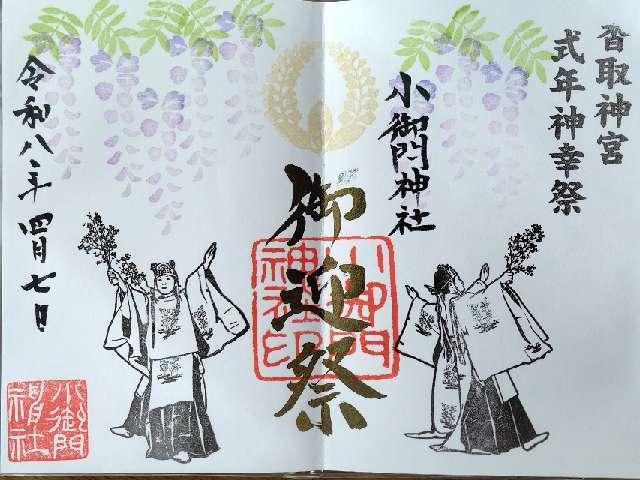 香取神宮
式年神幸祭
小御門神社
御迎祭
小御門神社印
令和八年四月七日
小御門神社